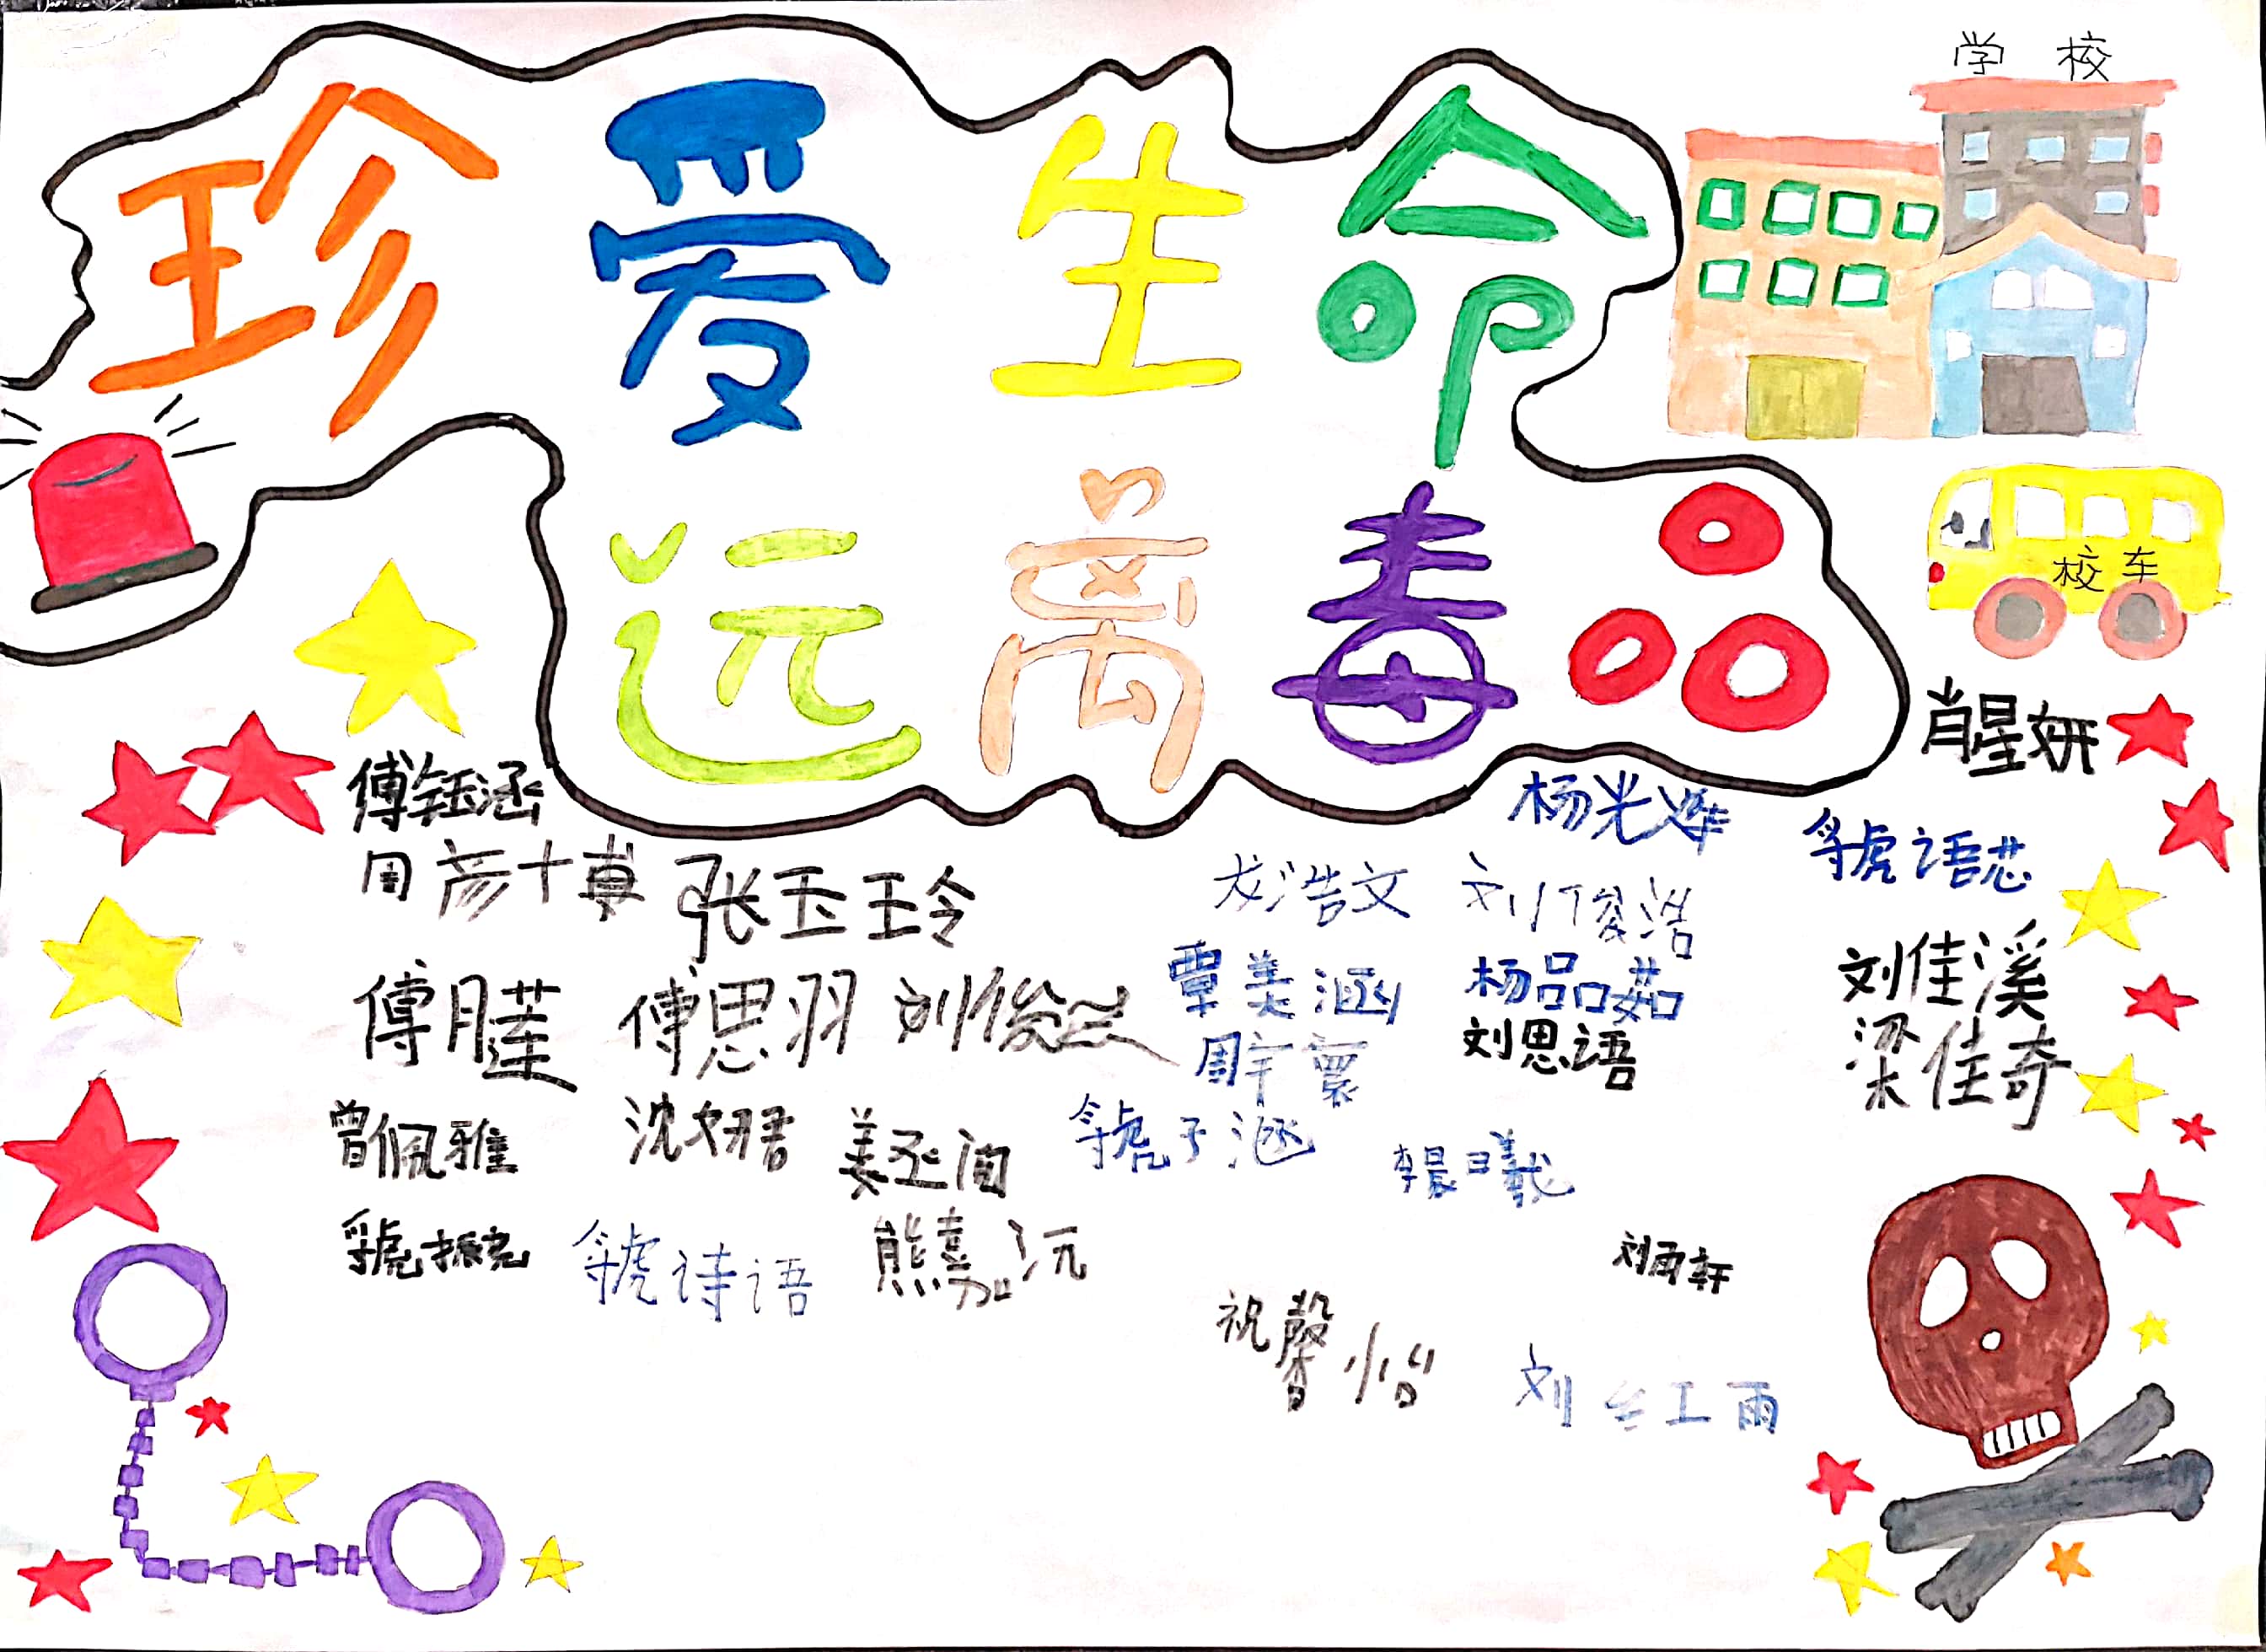 学校
珍爱生命
远离毒品
校车
肖星妍
傅钰涵
杨光烨
虢语芯
周彦博
张玉玲
龙浩文
刘俊浩
刘佳溪
傅思羽
覃美涵
杨品茹
刘思语
梁佳奇
周宇寰
曾佩雅
沈妍君
姜丞泊
虢子涵
李晨曦
虢振尧
虢诗语
熊嘉沅
刘雨轩
祝馨怡
刘红雨